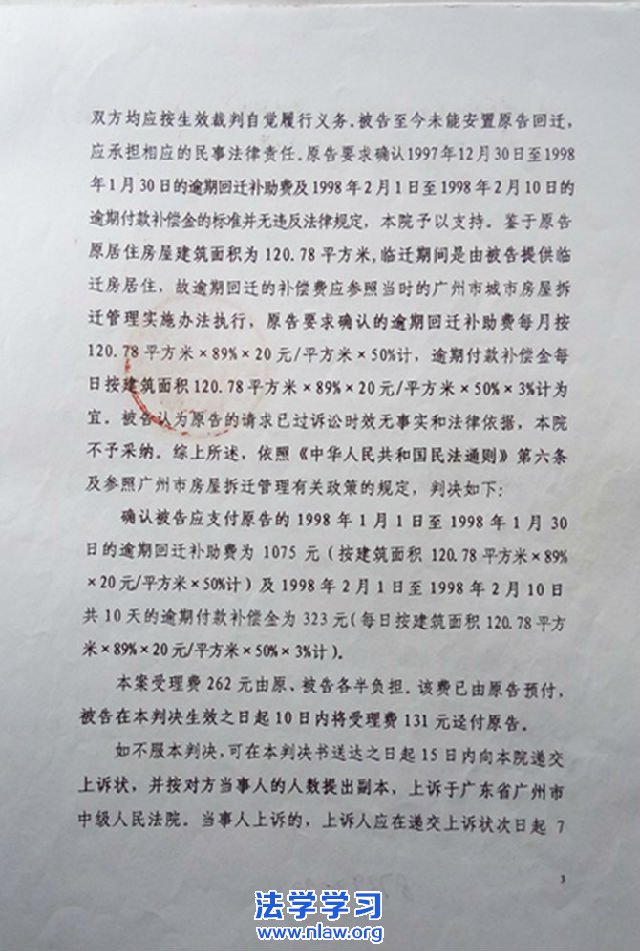 双方均应按生效裁判自觉履行义务。被告至今未能安置原告回迁，
应承担相应的民事法律责任。原告要求确认1997年12月30日至1998
年1月30日的逾期回迁补助费及1998年2月1日至1998年2月10日的
逾期付款补偿金的标准并无违反法律规定，本院予以支持。鉴于原告
原居住房屋建筑面积为120.78平方米，临迁期间是由被告提供临
迁房居住，故逾期回迁的补偿费应参照当时的广州市城市房屋拆
迁管理实施办法执行，原告要求确认的逾期回迁补助费每月按
120.78平方米×89%×20元/平方米×50%计，逾期付款补偿金每
日按建筑面积120.78平方米×89%×20元/平方米×50%×3%计为
宜。被告认为原告的请求已过诉讼时效无事实和法律依据，本院
不予采纳。综上所述，依照《中华人民共和国民法通则》第六条
及参照广州市房屋拆迁管理有关政策的规定，判决如下：
确认被告应支付原告的1998年1月1日至1998年1月30
日的逾期回迁补助费为1075元（按建筑面积120.78平方米×89%
×20元/平方米×50%计）及1998年2月1日至1998年2月10日
共10天的逾期付款补偿金为323元（每日按建筑面积120.78平方
米×89%×20元/平方米×50%×3%计）。
本案受理费262元由原、被告各半负担。该费已由原告预付，
被告在本判决生效之日起10日内将受理费131元迳付原告。
如不服本判决，可在本判决书送达之日起15日内向本院递交
上诉状，并按对方当事人的人数提出副本，上诉于广东省广州市
中级人民法院。当事人上诉的，上诉人应在递交上诉状次日起7
3
法学学习
www.nlaw.org